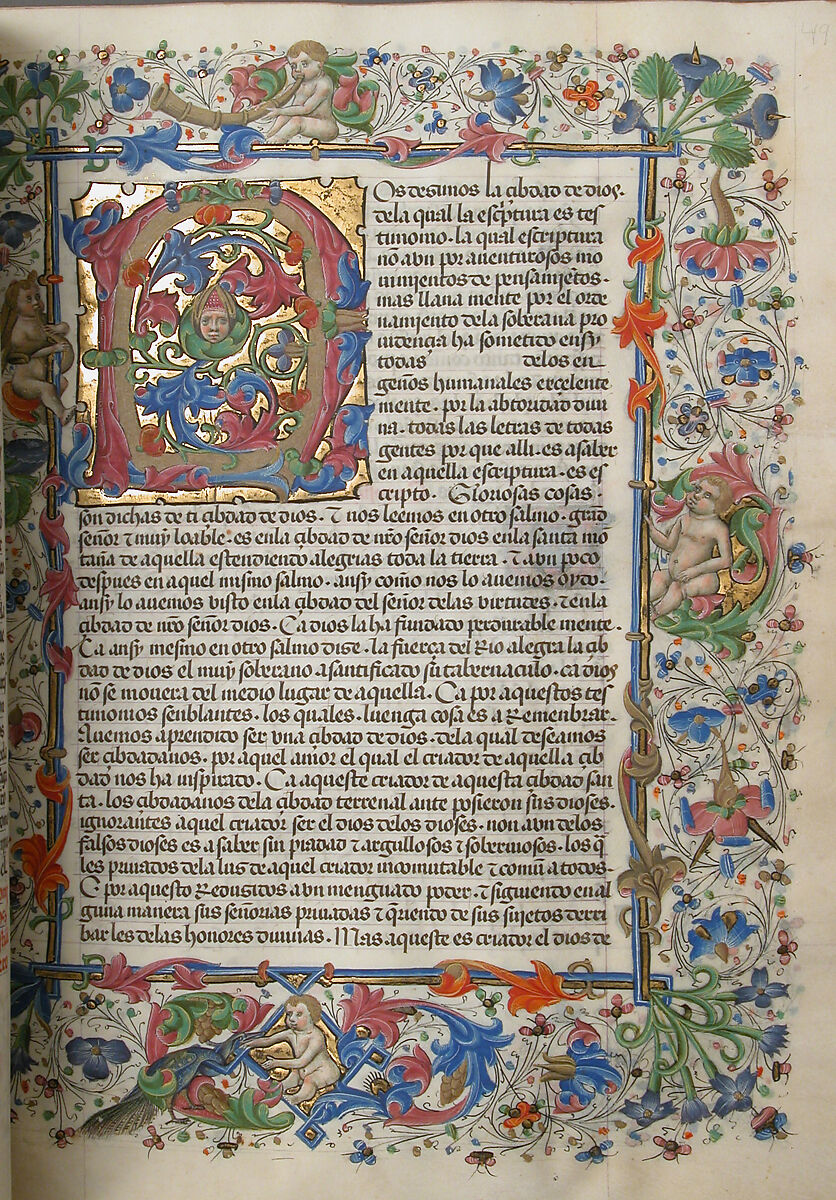 49
Nos dezimos la çibdad de dios.
dela qual la escriptura es tes
timonio. la qual escriptura
nõ avn por aventurosos mo
uimientos de pensamiẽtos.
mas llana mente por el orde
namiento dela soberana pro
uidençia ha sometido en sy
todas delos en
geños humanales exçelente
mente. por la abtoridad diui
na. todas las letras de todas
gentes por que alli. es a saber
en aquella escriptura. es es
cripto. Gloriosas cosas.
son dichas de ti çibdad de dios. ⁊ nos leemos en otro salmo. grãd
señor ⁊ muy loable. es en la çibdad de nr̃o señor dios enla santa mõ
taña de aquella estendiendo alegrias toda la tierra. ⁊ avn poco
despues en aquel mismo salmo. ansy como nos lo avemos oydo.
ansy lo avemos visto enla çibdad del señor delas virtudes. ⁊ enla
çibdad de nr̃o señor dios. Ca dios la ha fundado perdurable mente.
Ca ansy mesmo en otro salmo dize. la fuerça del Rio alegra la çib
dad de dios el muy soberano a santificado su tabernaculo. ca dios
nõ se mouera del medio lugar de aquella. Ca por aquestos tes
timonios senblantes. los quales. luenga cosa es a Remenbrar.
Auemos aprendido ser vna çibdad de dios. dela qual deseamos
ser çibdadanos. por aquel amor el qual el criador de aquella çib
dad nos ha inspirado. Ca aqueste criador de aquesta çibdad san
ta. los çibdadanos dela çibdad terrenal ante posieron sus dioses.
ignorantes aquel criador ser el dios delos dioses. non avn delos
falsos dioses es a saber sin piadad ⁊ argullosos ⁊ soberuiosos. los q̃
les priuados dela lus de aquel criador incomutable ⁊ comũ a todos.
E por aquesto Redusidos a vn menguado poder. ⁊ siguiendo en al
guna manera sus señorias priuadas ⁊ q̃riendo de sus sujetos derri
bar les delas honores diuinas. Mas aqueste es criador el dios de